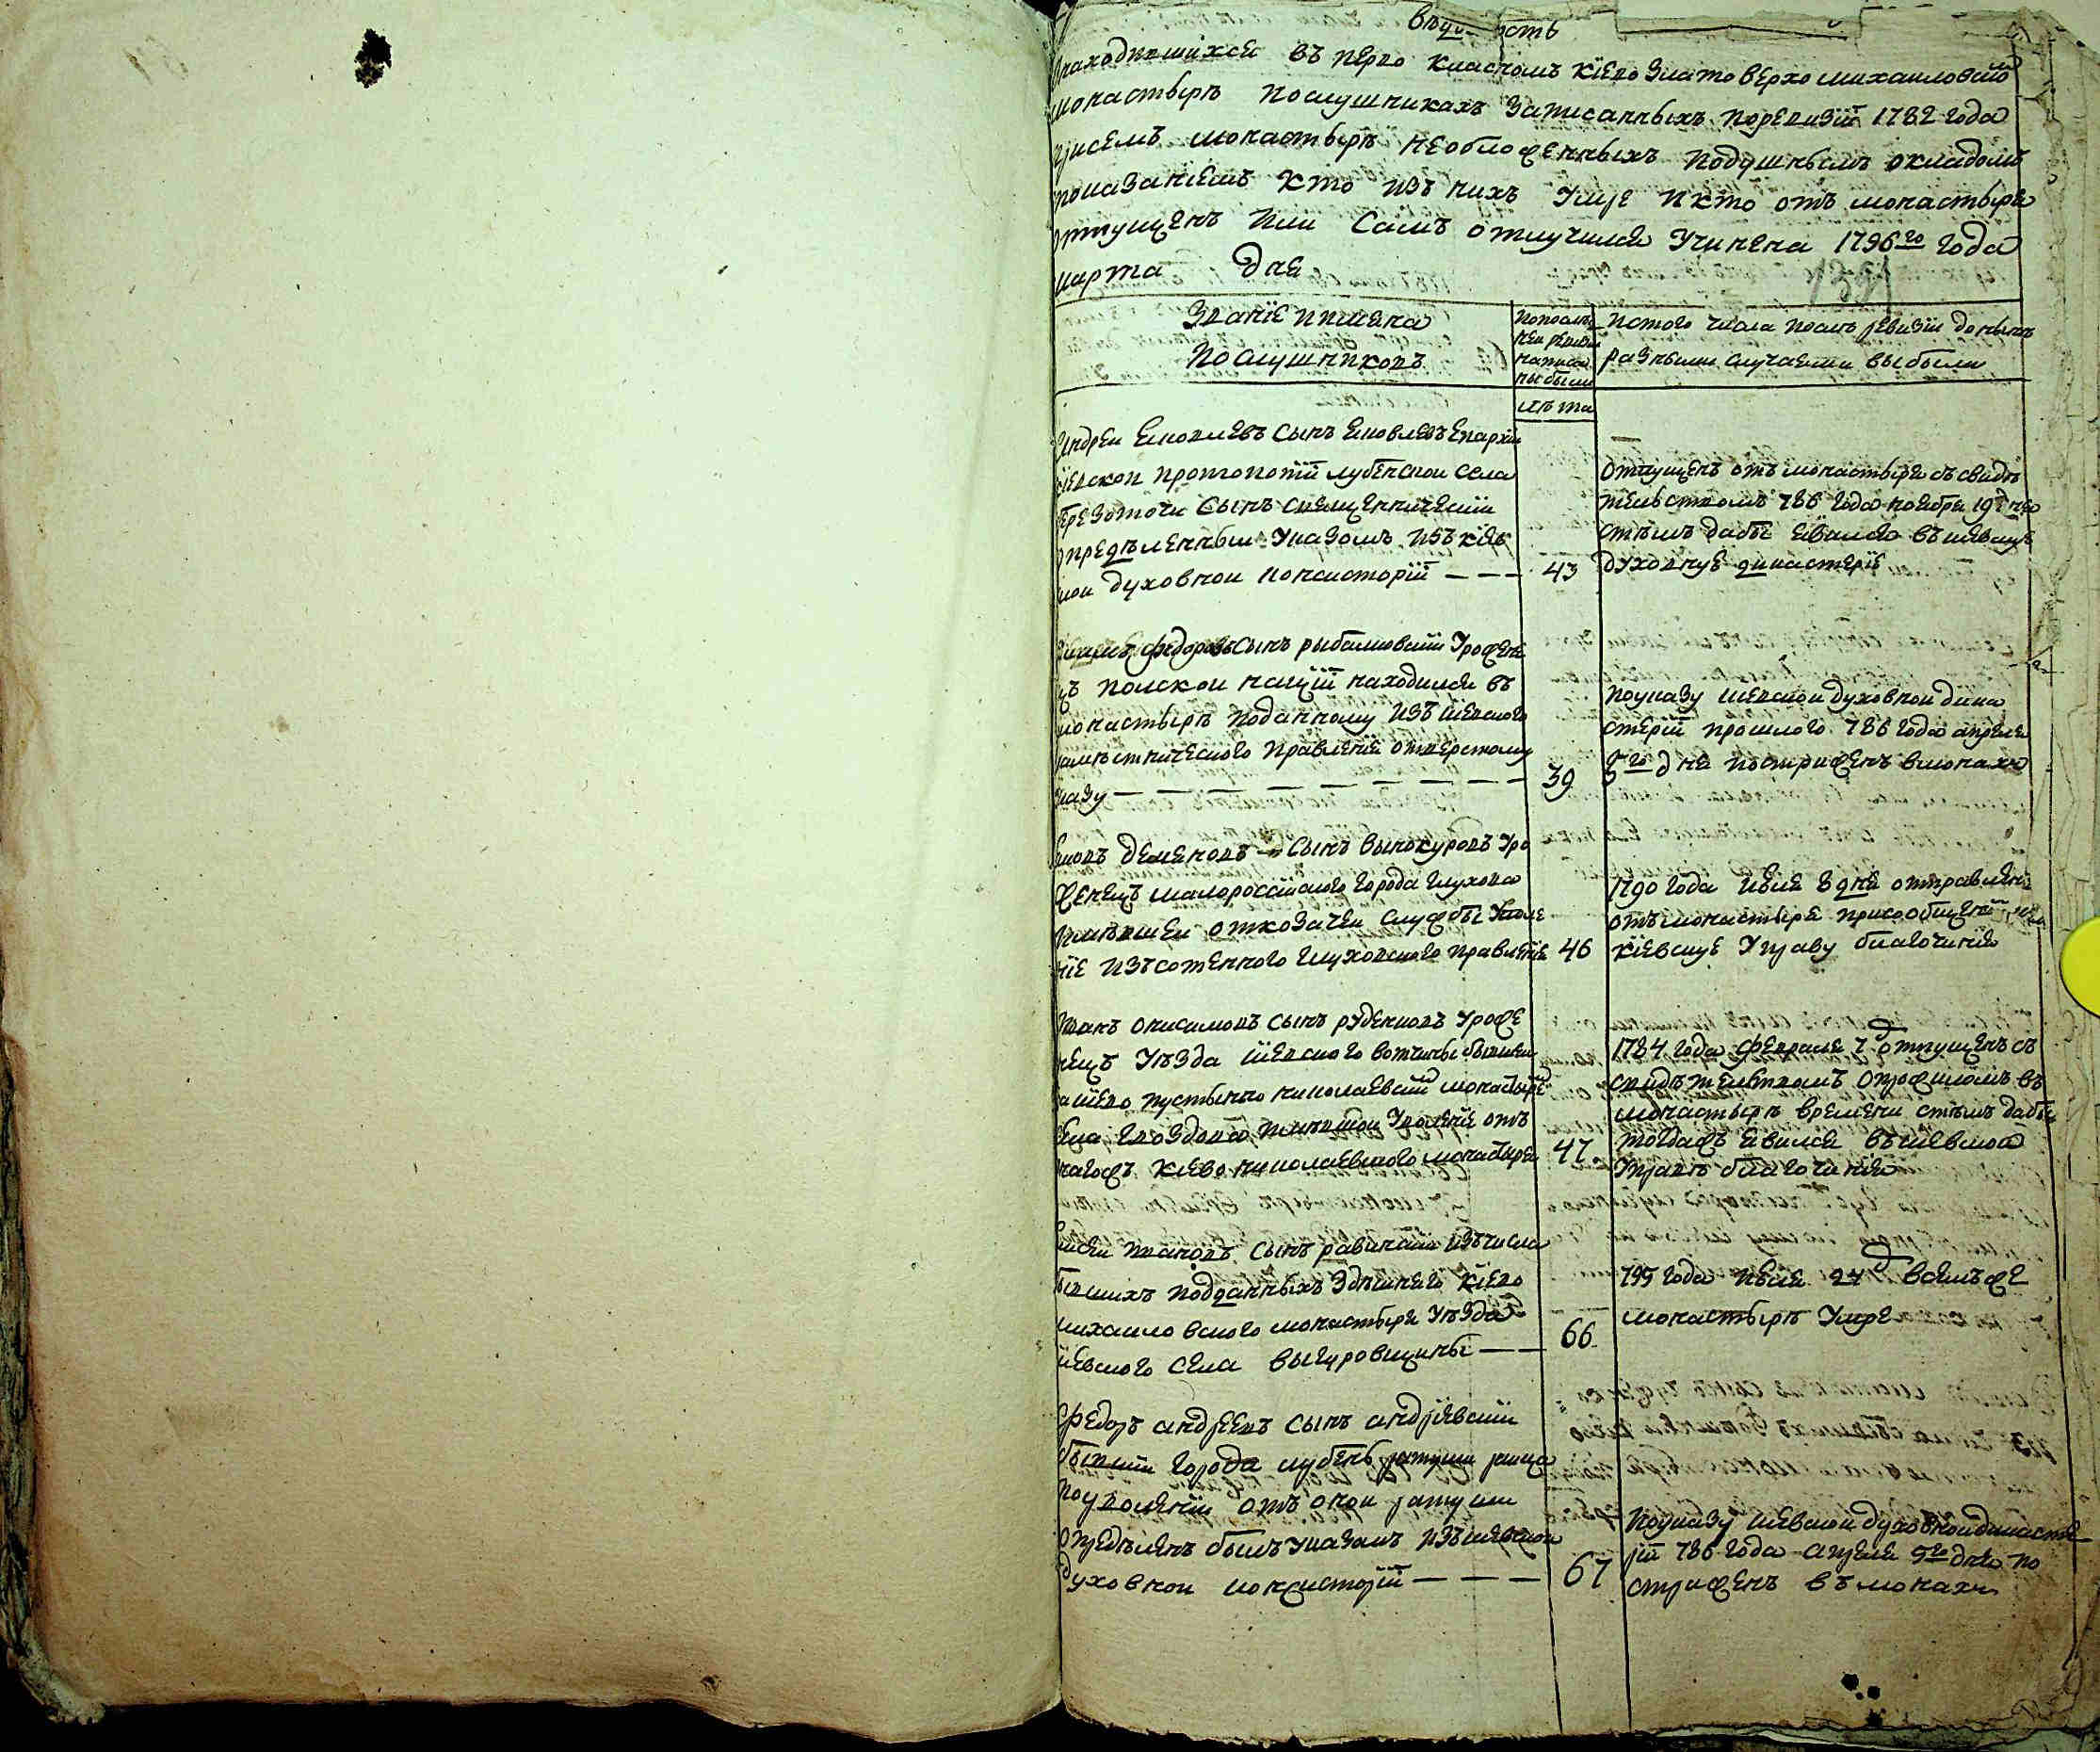 находившихся въ перво класномъ Кіево Злато верхо михаиловско
монастырѣ послушникахъ записанныхъ поревизіи 1782 года
присемъ монастырѣ необложенныхъ подушнымъ окладомъ
показаніемъ кто изъ нихъ умре икто отъ монастыря
отпущенъ или самъ отлучился учинена 1796го года
марта дня
Званіе иимена
послушниковъ
попослѣд
ней ревизіи
написа
ны были
лѣта
истого числа послѣ ревизіи донынѣ
разными случаями выбыли
Андреи Яковлевъ сынъ Яковлевъ Епархіи
кіевскои протопопіи лубенскои села
березоточи сынъ священническіи
опредѣленныи указомъ изъ кіев
скои духовнои консисторіи
43
отпущенъ отъ монастыря съ свидѣ
тельствомъ 786 года ноября 19 дня
стѣмъ дабы явился въ кіевскую
духовную дикастерію
федоровъ сынъ рыбалковскіи уроже
цъ полскои націи находился въ
монастырѣ поданному изъ кіевского
намѣстнического правленія отверстому
указу
39
поуказу кіевскои духовнои дика
стеріи прошлого 786 года апреля
5го дня постриженъ вмонахи
Яковъ Деменовъ сынъ винокуровъ уро
женецъ малороссіиского города глухова
имѣвшеи откозачеи службы уволе
ніе изъ сотенного глуховского правленія
46
1790 года июля 8 дня отправленъ
отъ монастыря приобщеніи
кіевскую управу благочинія
Иванъ онисимовъ сынъ руденковъ уроже
нецъ уѣзда кіевского вотчины бывши
кіево пустынно николаевскіи монастыря
села гвоздова имѣвшои уволеніе отъ
тогожъ кіево николаевского монастыря
47
1784 года февраля 7 отпущенъ съ
свидѣтельствомъ опрожитомъ въ
монастырѣ времени стѣмъ дабы
тогдажъ явился въ кіевскои
управѣ благочинія
Ивановъ сынъ равинскіи изъ числа
бывшихъ подданныхъ здѣшнего кіево
михаиловского монастыря уѣзда
кіевского села выгуровщины
66
795 года июля 24 всемъ же
монастырѣ умре
Федоръ андреевъ сынъ андріевскіи
бывшіи города лубенъ ратуши раица
поуволеніи отъ онои ратуши
опредѣленъ былъ указомъ изъ кіевскои
духовнои консисторіи
67
поуказу кіевскои духовнои дикасте
ріи 786 года апреля 5го дня по
стриженъ въ монахи